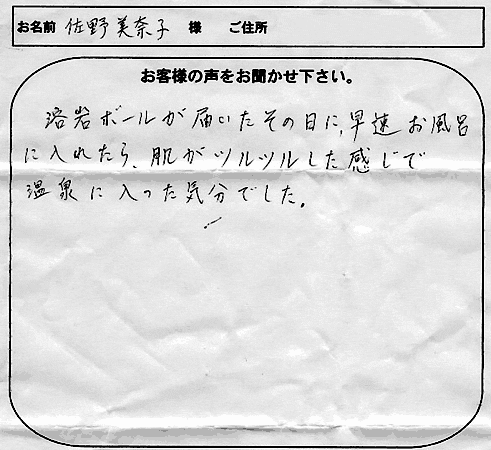 お名前 佐野美奈子 様 ご住所
お客様の声をお聞かせ下さい。
溶岩ボールが届いたその日に、早速お風呂
に入れたら、肌がツルツルした感じで
温泉に入った気分でした。